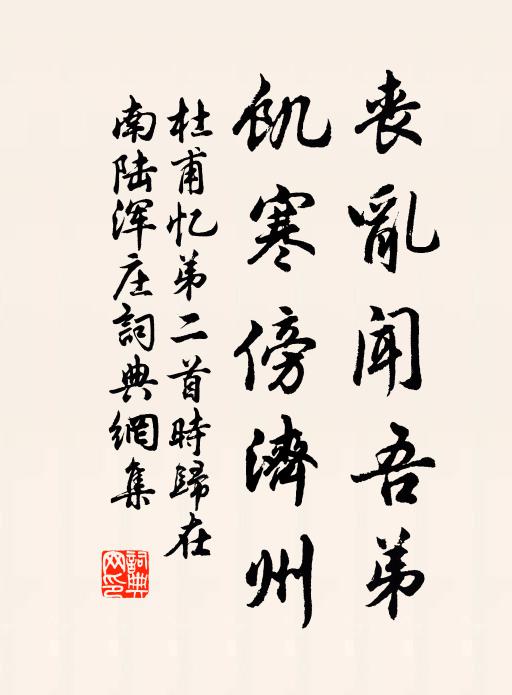 丧亂闻吾弟
飢寒傍濟州
杜甫忆弟二首時歸在
南陆浑庄詞典網集
詞典网印